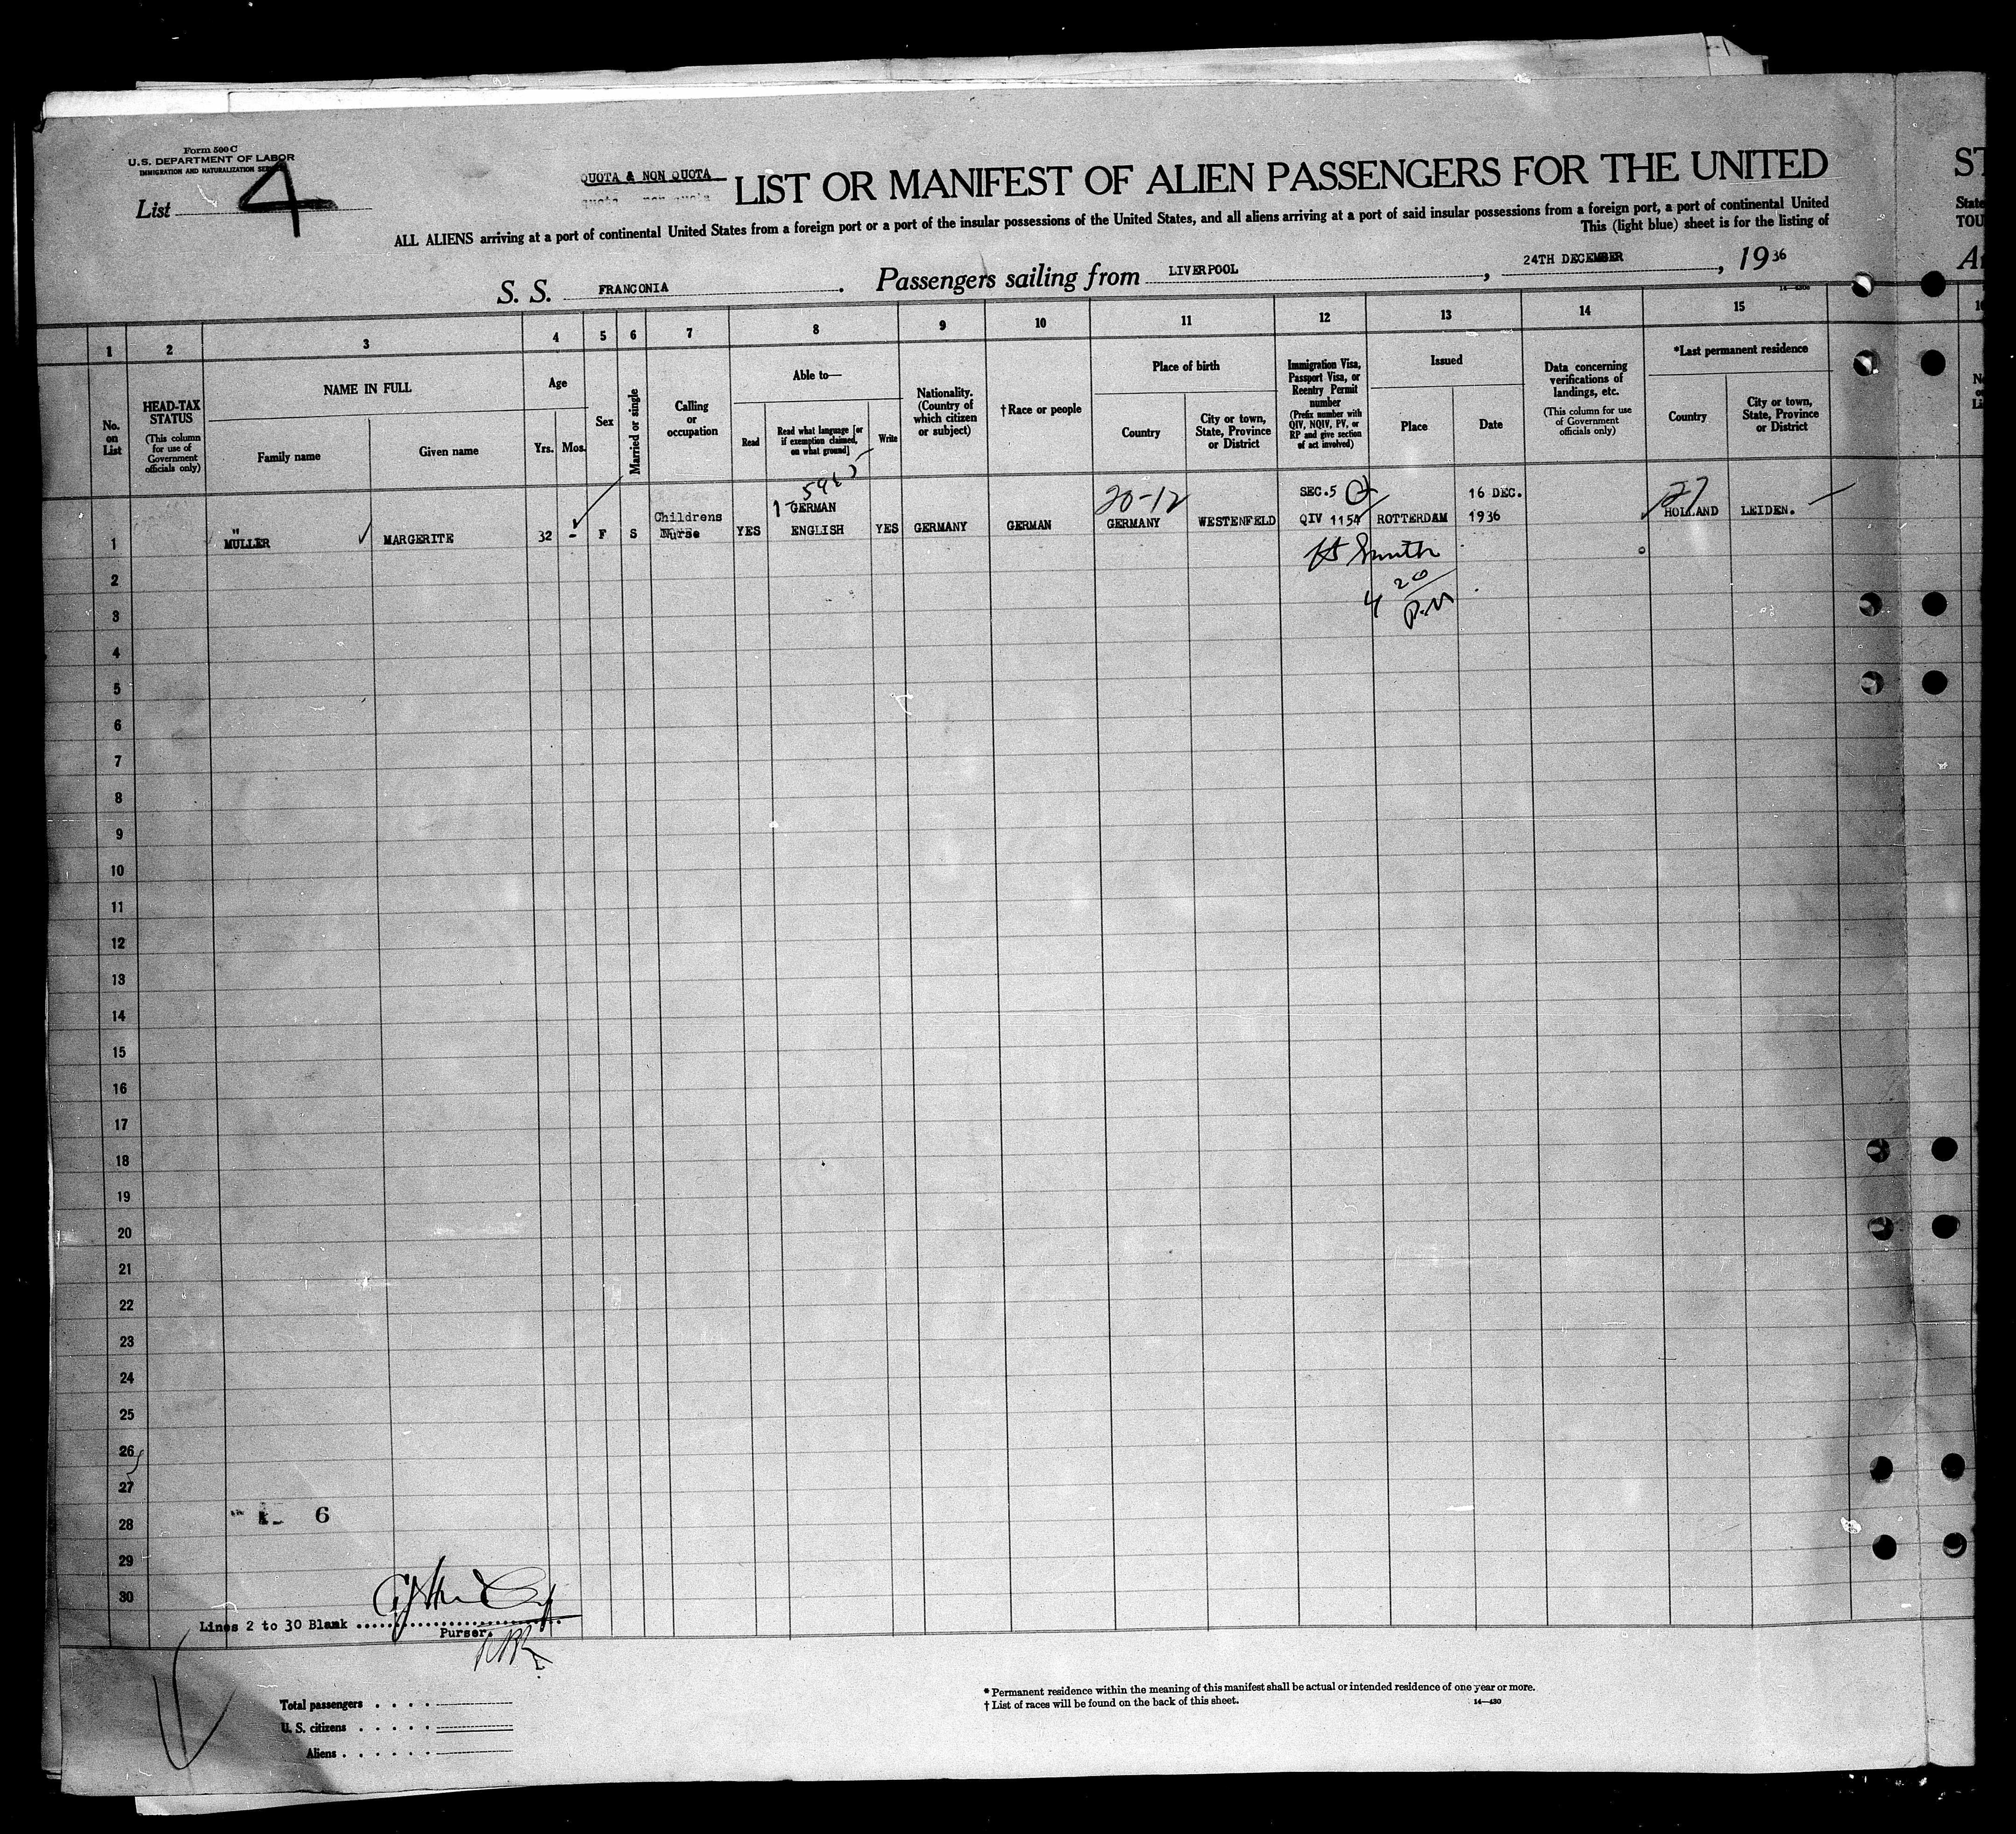 Form 500 C
U.S. DEPARTMENT OF LABOR
IMMIGRATION AND NATURALIZATION SERVICE
List 4
QUOTA & NON QUOTA
LIST OR MANIFEST OF ALIEN PASSENGERS FOR THE UNITED
ST
ALL ALIENS arriving at a port of continental United States from a foreign port or a port of the insular possessions of the United States, and all aliens arriving at a port of said insular possessions from a foreign port, a port of continental United
State
This (light blue) sheet is for the listing of
TOU
S. S. FRANCONIA. Passengers sailing from LIVERPOOL, 24TH DECEMBER, 1936
1 2 3 4 5 6 7 8 9 10 11 12 13 14 15
No. on List
HEAD-TAX STATUS
(This column for use of Government officials only)
NAME IN FULL
Family name
Given name
Age
Yrs.
Mos.
Sex
Married or single
Calling or occupation
Able to—
Read
Read what language [or if exemption claimed, on what ground]
Write
Nationality. (Country of which citizen or subject)
†Race or people
Place of birth
Country
City or town, State, Province or District
Immigration Visa, Passport Visa, or Reentry Permit number
(Prefix number with QIV, NQIV, PV, or RP and give section of act involved)
Issued
Place
Date
Data concerning verifications of landings, etc.
(This column for use of Government officials only)
*Last permanent residence
Country
City or town, State, Province or District
20-12
27
1 MÜLLER MARGERITE 32 - F S Childrens Nurse YES GERMAN ENGLISH YES GERMANY GERMAN GERMANY WESTENFELD SEC.5 QIV 1154 ROTTERDAM 16 DEC. 1936 HOLLAND LEIDEN.
Smith
4 20
P.M
2
3
4
5
6
7
8
9
10
11
12
13
14
15
16
17
18
19
20
21
22
23
24
25
26
27
28
6
29
30
Lines 2 to 30 Blank
Purser.
Total passengers
U. S. citizens
Aliens
* Permanent residence within the meaning of this manifest shall be actual or intended residence of one year or more.
† List of races will be found on the back of this sheet.
14—430